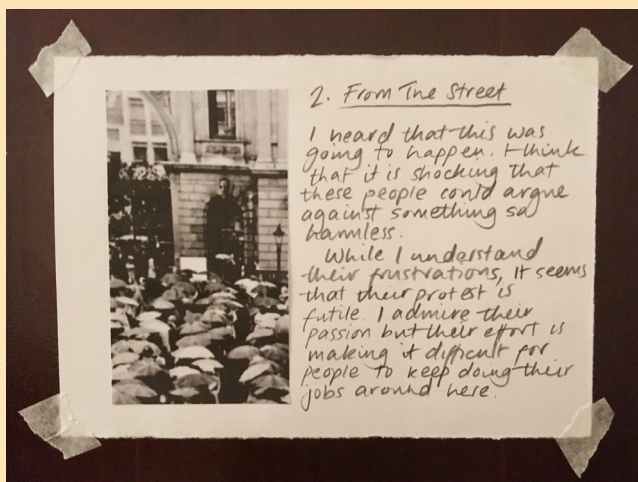 2. From The Street
I heard that this was
going to happen. I think
that it is shocking that
these people could argue
against something so
harmless.
While I understand
their frustrations, it seems
that their protest is
futile. I admire their
passion but their effort is
making it difficult for
people to keep doing their
jobs around here.